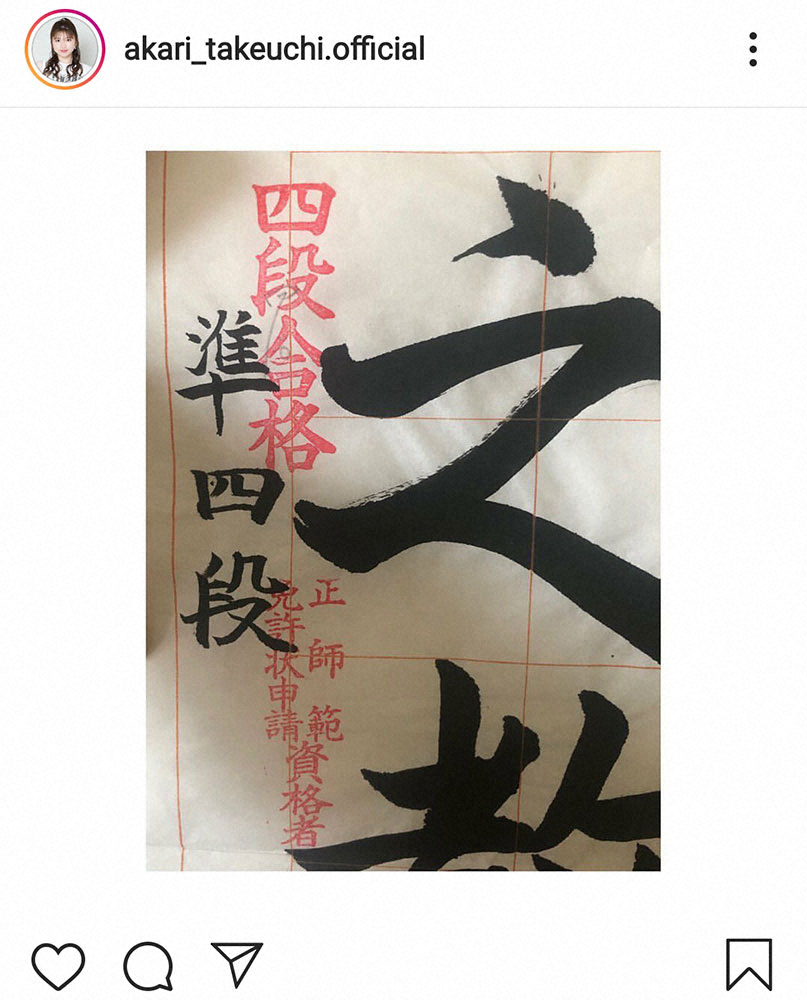 akari_takeuchi.official
之教
四段合格
正師範
免許状申請
資格者
準四段